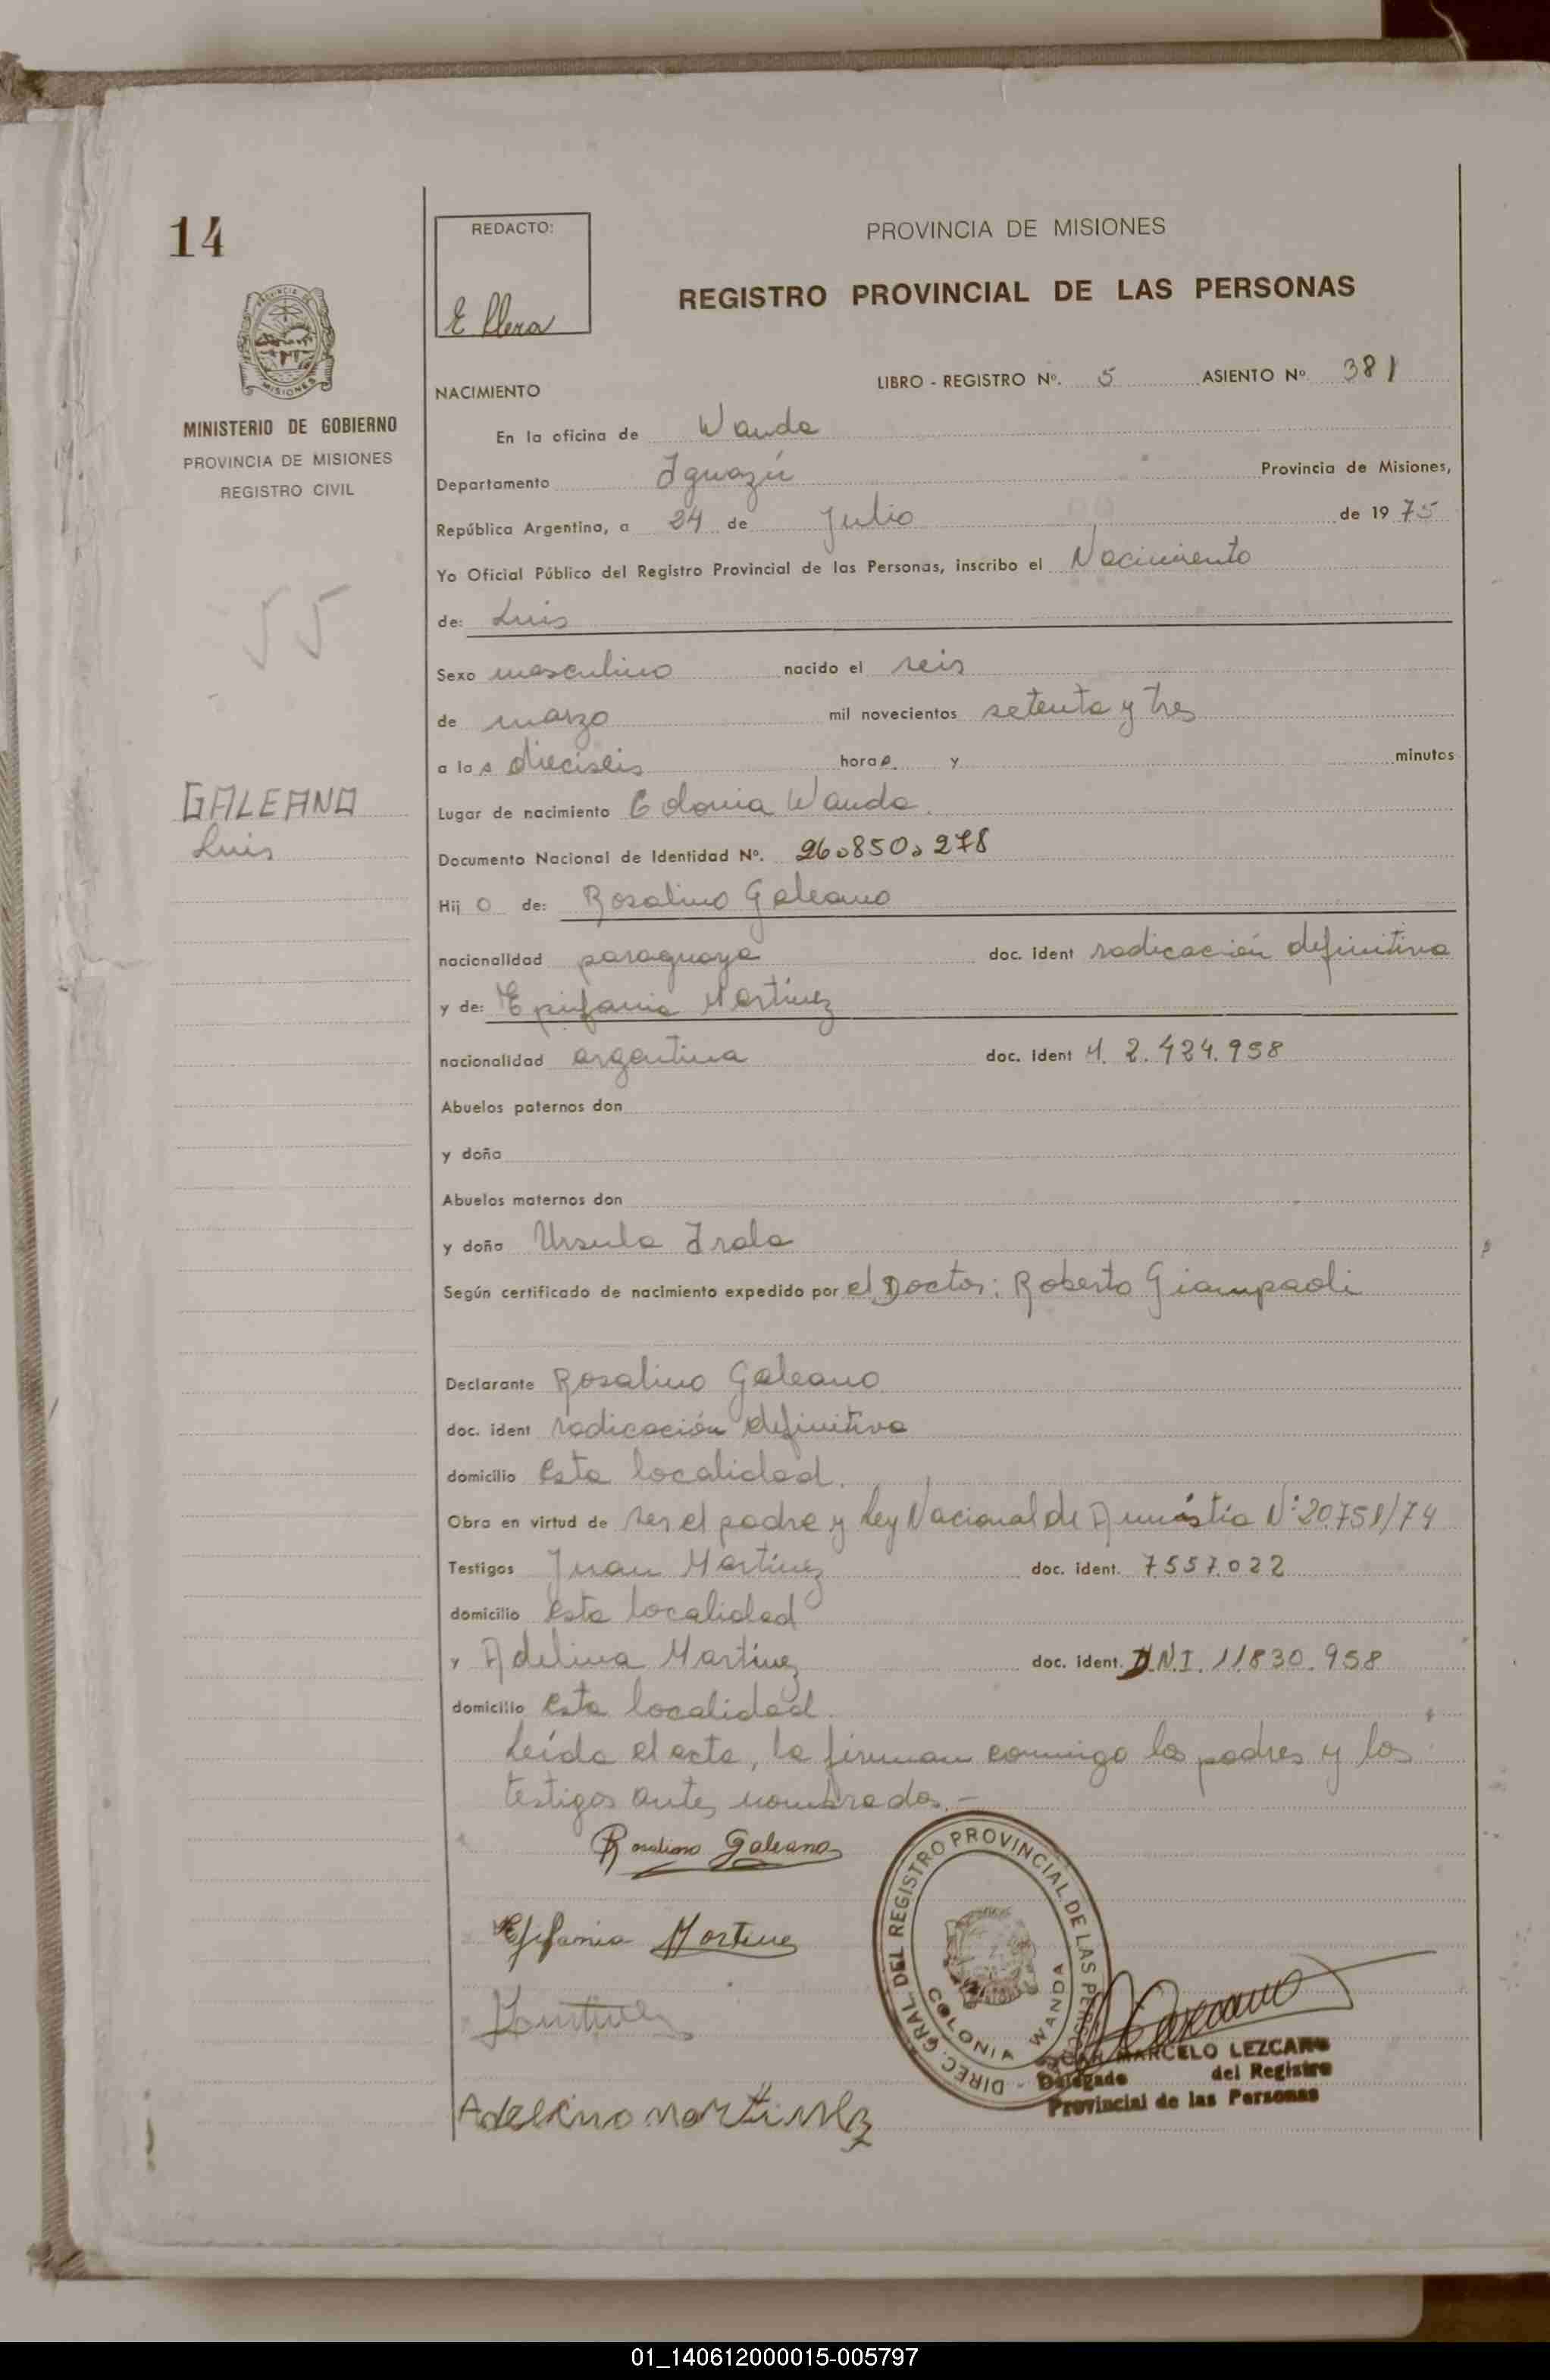 14
REDACTO:
E Llera
PROVINCIA DE MISIONES
REGISTRO PROVINCIAL DE LAS PERSONAS
PROVINCIA DE MISIONES
MINISTERIO DE GOBIERNO
PROVINCIA DE MISIONES
REGISTRO CIVIL
55
GALEANO
Luis
NACIMIENTO LIBRO - REGISTRO Nº. 5 ASIENTO Nº 381
En la oficina de Wanda
Departamento Iguazú Provincia de Misiones,
República Argentina, a 24 de Julio de 19 75
Yo Oficial Público del Registro Provincial de las Personas, inscribo el Nacimiento
de: Luis
Sexo masculino nacido el seis
de marzo mil novecientos setenta y tres
a las dieciseis horas y minutos
Lugar de nacimiento Colonia Wanda.
Documento Nacional de Identidad Nº. 26.850.278
Hij o de: Rosalino Galeano
nacionalidad paraguaya doc. ident radicación definitiva
y de: Epifania Martinez
nacionalidad argentina doc. Ident M. 2.424.958
Abuelos paternos don
y doña
Abuelos maternos don
y doña Ursula Irala
Según certificado de nacimiento expedido por el Doctor: Roberto Giampaoli
Declarante Rosalino Galeano
doc. ident radicación definitiva
domicilio esta localidad.
Obra en virtud de ser el padre y Ley Nacional de Amnistia Nº 20.751/74
Testigos Juan Martinez doc. ident. 7.557.022
domicilio esta localidad
y Adelina Martinez doc. ident. D.N.I. 11830.958
domicilio esta localidad.
Leída el acta, la firman conmigo los padres y los
testigos antes nombrados.-
Rosalino Galeano
Epifania Martinez
Martinez
Adelina Martinez
DIREC. GRAL. DEL REGISTRO PROVINCIAL DE LAS PERSONAS
COLONIA WANDA
OSCAR MARCELO LEZCANO
Delegado del Registro
Provincial de las Personas
01_140612000015-005797